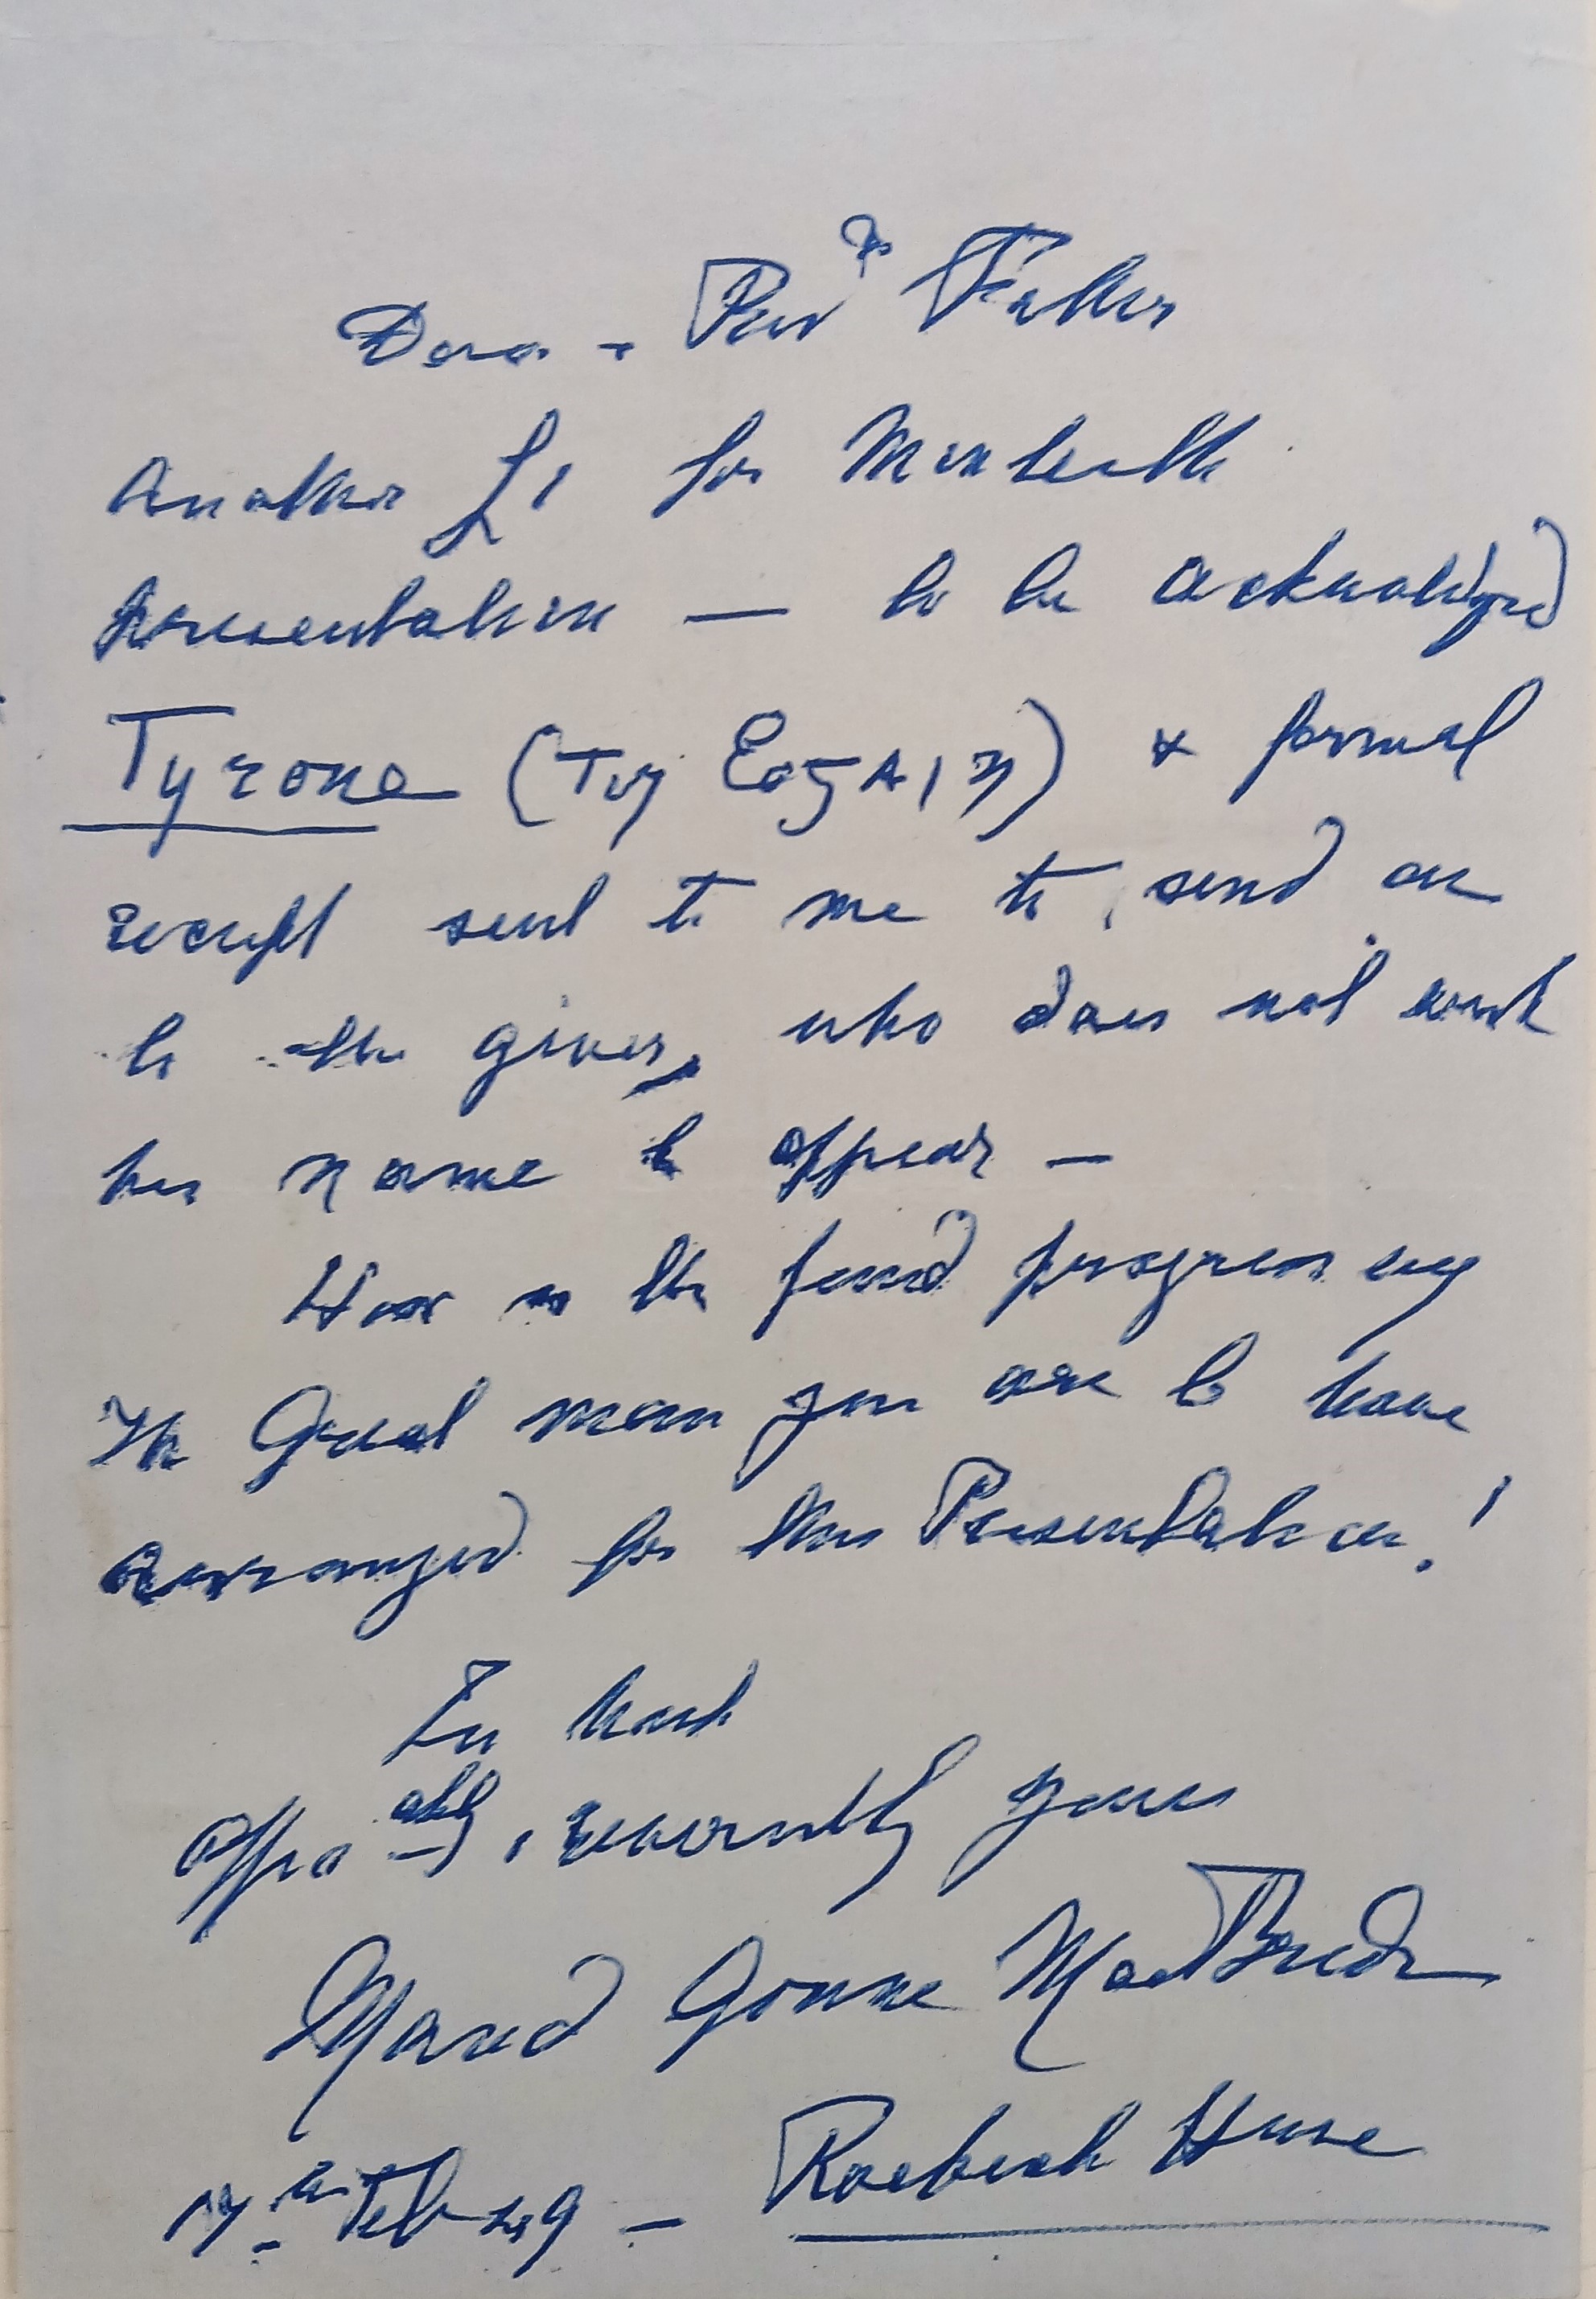 Dear - Revd Father
Another £1 for Monteith
presentation — to be acknowledged
Tyrone (Tír Eoġain) & formal
receipt sent to me to send on
to the giver, who does not want
his name to appear —
How is the fund progressing
The Great man you are to have
arranged for this Presentation!
In haste
affectly, reverently yours
Maud Gonne MacBride
17th Feb 49 — Roebuck House